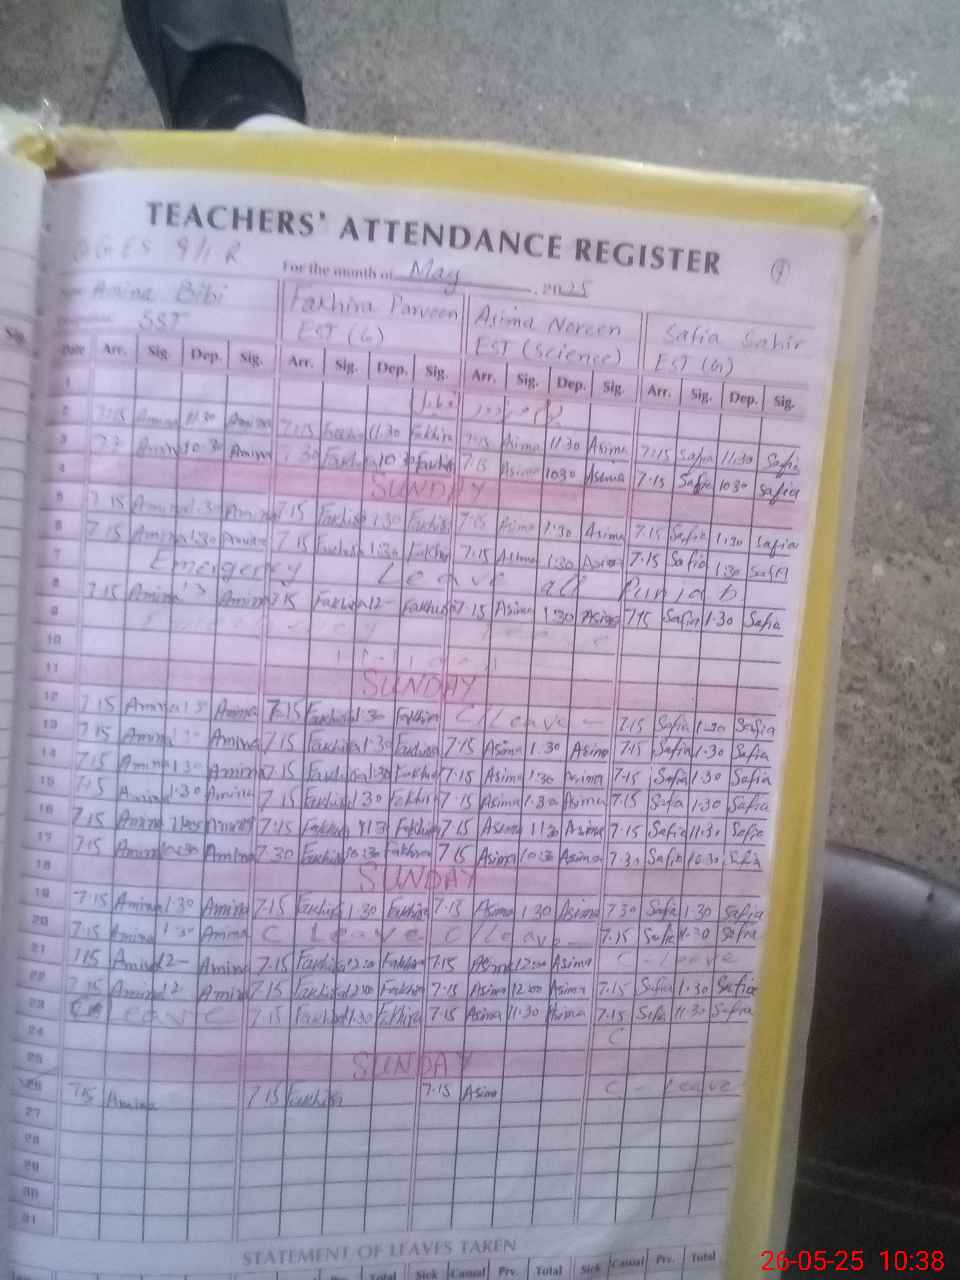 TEACHERS' ATTENDANCE REGISTER
GGES 9/1-R
For the month of May 2025
Amina Bibi Fakhira Parveen Asima Noreen Safia Sahir
SST EST (G) EST (Science) EST (G)
Date Arr. Sig. Dep. Sig. Arr. Sig. Dep. Sig. Arr. Sig. Dep. Sig. Arr. Sig. Dep. Sig.
1
2 7:15 Amina 11:30 Amina 7:15 Fakhira 11:30 Fakhira 7:15 Asima 11:30 Asima 7:15 Safia 11:30 Safia
3 Amina 10:30 Amina Fakhira 10:30 Fakhira 7:15 Asima 1030 Asima 7:15 Safia 1030 Safia
4 SUNDAY
5 7:15 Amina 1:30 Amina 7:15 Fakhira 1:30 Fakhira 7:15 Asima 1:30 Asima 7:15 Safia 1:30 Safia
6 7:15 Amina 1:30 Amina 7:15 Fakhira 1:30 Fakhira 7:15 Asima 1:30 Asima 7:15 Safia 1:30 Safia
7 Emergency Leave all Punjab
8 7:15 Amina Amina 7:15 Fakhira 12- Fakhira 7:15 Asima 1:30 Asima 7:15 Safia 1:30 Safia
9
10
11 SUNDAY
12 7:15 Amina Amina 7:15 Fakhira 1:30 Fakhira C/Leave - 7:15 Safia 1:30 Safia
13 7:15 Amina Amina 7:15 Fakhira 1:30 Fakhira 7:15 Asima 1:30 Asima 7:15 Safia 1:30 Safia
14 7:15 Amina 1:30 Amina 7:15 Fakhira 1:30 Fakhira 7:15 Asima 1:30 Asima 7:15 Safia 1:30 Safia
15 7:15 Amina 1:30 Amina 7:15 Fakhira 1:30 Fakhira 7:15 Asima 1:30 Asima 7:15 Safia 1:30 Safia
16 7:15 Amina Amina 7:15 Fakhira Fakhira 7:15 Asima 11:30 Asima 7:15 Safia 11:30 Safia
17 7:15 Amina 10:30 Amina 7:30 Fakhira 10:30 Fakhira 7:15 Asima 10:30 Asima 7:30 Safia 10:30 Safia
18 SUNDAY
19 7:15 Amina 1:30 Amina 7:15 Fakhira 1:30 Fakhira 7:15 Asima 1:30 Asima 7:30 Safia 1:30 Safia
20 7:15 Amina 1:30 Amina C Leave C/Leave 7:15 Safia 1:30 Safia
21 7:15 Amina 12- Amina 7:15 Fakhira 12:00 Fakhira 7:15 Asima 12:00 Asima C-Leave
22 7:15 Amina 12 Amina 7:15 Fakhira 12:00 Fakhira 7:15 Asima 12:00 Asima 7:15 Safia 1:30 Safia
23 Leave 7:15 Fakhira 11:30 Fakhira 7:15 Asima 11:30 Asima 7:15 Safia 11:30 Safia
24 C
25 SUNDAY
26 7:15 Amina 7:15 Fakhira 7:15 Asima C-Leave
27
28
29
30
31
STATEMENT OF LEAVES TAKEN
Total Sick Casual Prv. Total Sick Casual Prv. Total
26-05-25 10:38